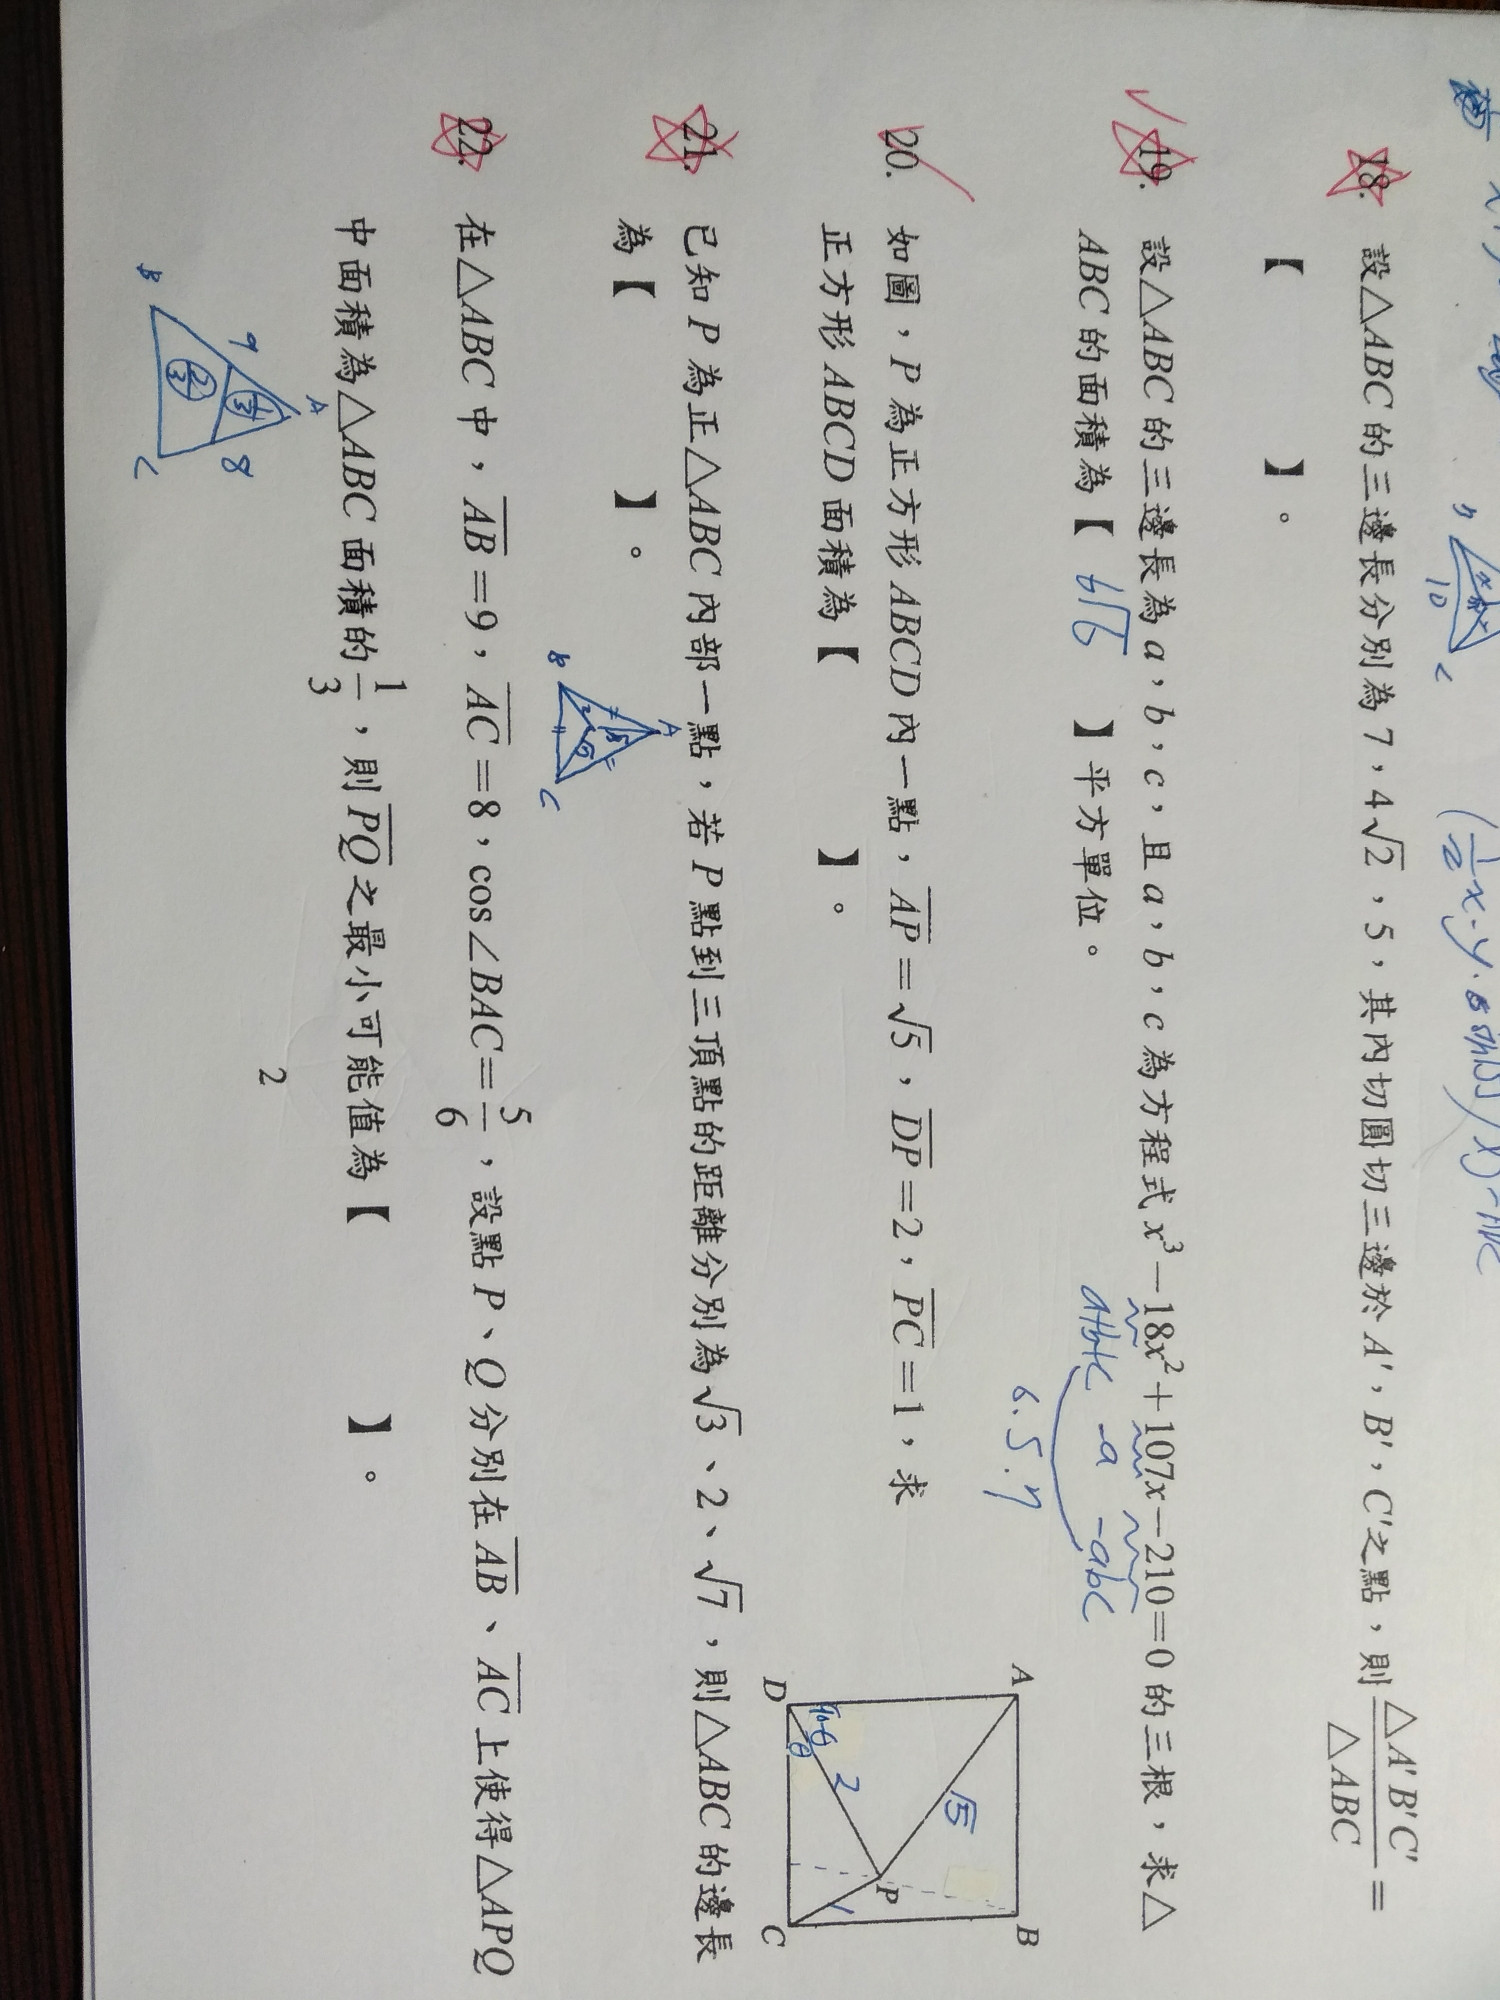 10
(1/2 x·y·
18. 設△ABC的三邊長分別為7,4√2,5,其內切圓切三邊於A',B',C'之點,則△A'B'C'/△ABC=
【 】。
19. 設△ABC的三邊長為a,b,c,且a,b,c為方程式x³-18x²+107x-210=0的三根,求△
a+b+c -a -abc
ABC的面積為【 6√6 】平方單位。
6.5.7
20. 如圖,P為正方形ABCD內一點,AP=√5,DP=2,PC=1,求
正方形ABCD面積為【 】。
A B
√5
P
2 1
90-θ
θ
D C
21. 已知P為正△ABC內部一點,若P點到三頂點的距離分別為√3、2、√7,則△ABC的邊長
為【 】。
A
B C
22. 在△ABC中,AB=9,AC=8,cos∠BAC=5/6,設點P、Q分別在AB、AC上使得△APQ
中面積為△ABC面積的1/3,則PQ之最小可能值為【 】。
A
9 1/3 8
2/3
B C
2